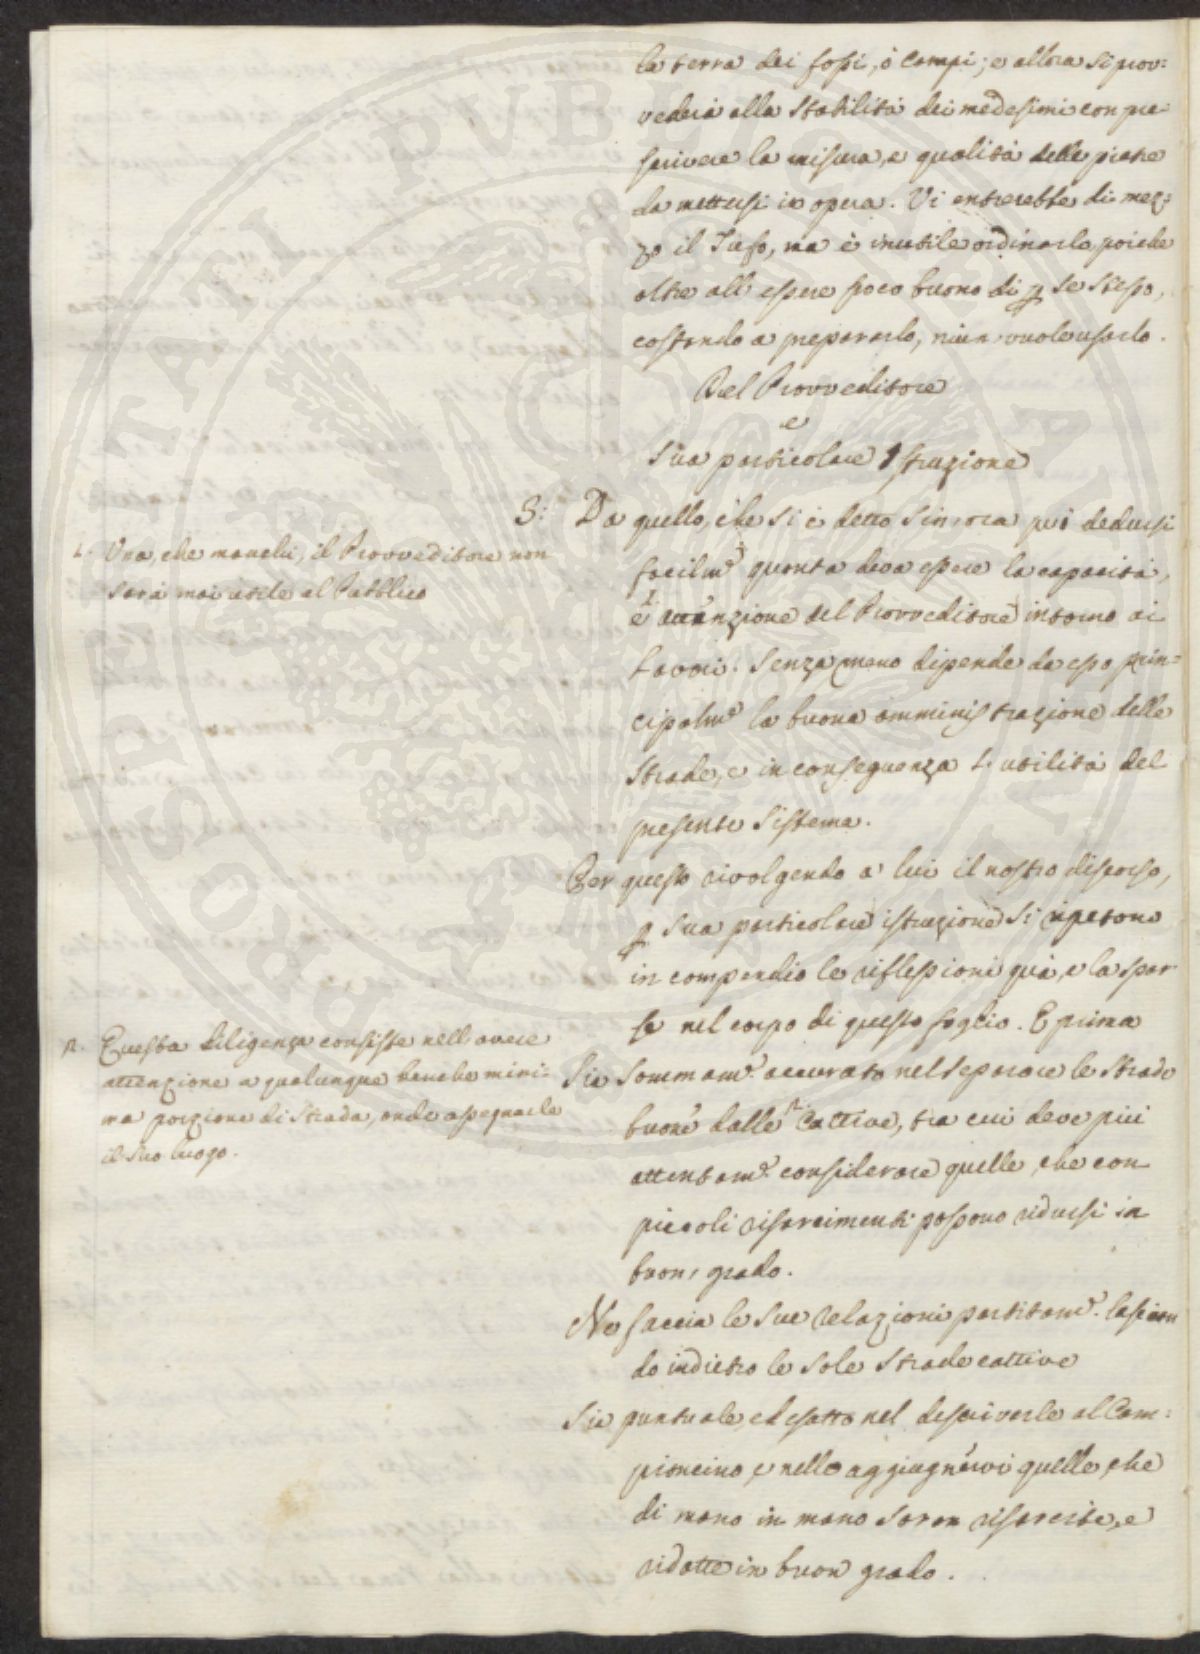 la terra dei fossi, ò Campi; e allora si prov:
vederà alla Stabilità dei medesimi con pre
scrivere la misura, e qualità delle pietre
da mettersi in opera. Vi entrerebbe di mez:
zo il Tufo, ma è inutile ordinarlo, poiche
oltre all' essere poco buono di p se stesso,
costando a prepararlo, niun vuole usarlo.
Del Provveditore
e
Sua particolare Istruzione
S: Da quello, che si è detto Sin' ora può dedursi
facilm.e quanta deva essere la capacità,
e 1. attenzione del Provveditore intorno ai
Lavori. Senza meno dipende da esso prin=
cipalm.e la buona amministrazione delle
Strade, e in conseguenza L' utilità del
presente Sistema.
1. Una, che manchi, il Provveditore non
sarà mai utile al Pubblico
Per questo rivolgendo a' lui il nostro discorso,
p Sua particolare istruzione Si ripetono
in compendio le riflessioni quà, e la spar
se nel corpo di questo foglio. E prima
Sia Sommam.e accurato nel separare le Strade
buone dalle 2. Cattive, tra cui deve più
attentam.e considerare quelle, che con
piccoli risarcimenti possono ridursi in
buon' grado.
2. Questa diligenza consiste nell' avere
attenzione a qualunque benche mini:
ma porzione di Strada, onde assegnarle
il Suo luogo.
Ne faccia le Sue relazioni partitam.e lascian
do indietro le Sole Strade cattive
Sia puntuale, ed esatto nel descriverle al Cam:
pioncino, e nello aggiugnervi quelle, che
di mano in mano Saran risarcite, e
ridotte in buon grado.
PROSPERITATI PUBLICAE